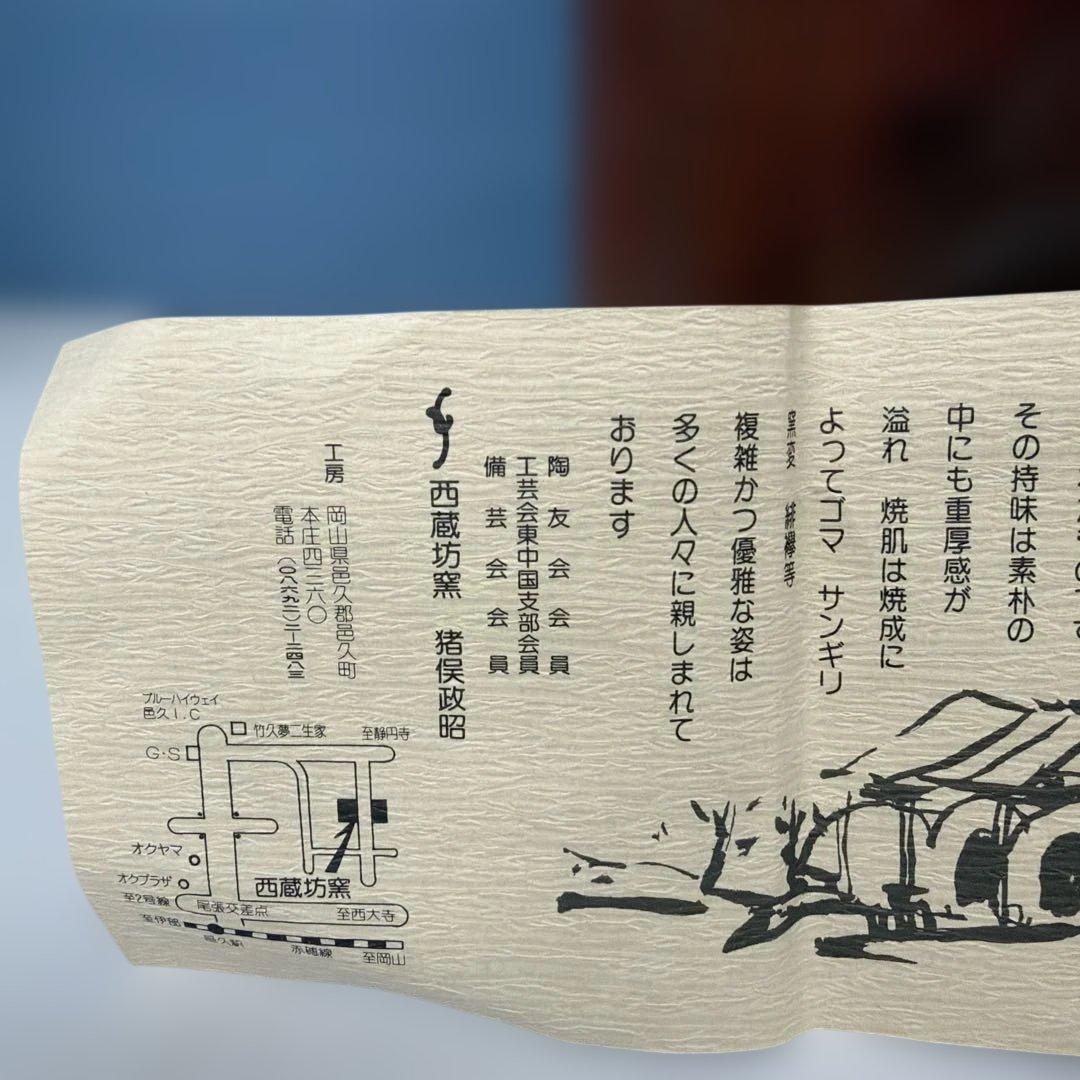 その持味は素朴の
中にも重厚感が
溢れ　焼肌は焼成に
よってゴマ　サンギリ
窯変　緋襷等
複雑かつ優雅な姿は
多くの人々に親しまれて
おります
陶友会会員
工芸会東中国支部会員
備芸会会員
西蔵坊窯　猪俣政昭
工房　岡山県邑久郡邑久町
本庄四三六〇
電話
ブルーハイウェイ
邑久I.C
竹久夢二生家
至静円寺
G・S
オクヤマ
オクプラザ
西蔵坊窯
至2号線
尾張交差点
至西大寺
至伊部
邑久駅
赤穂線
至岡山